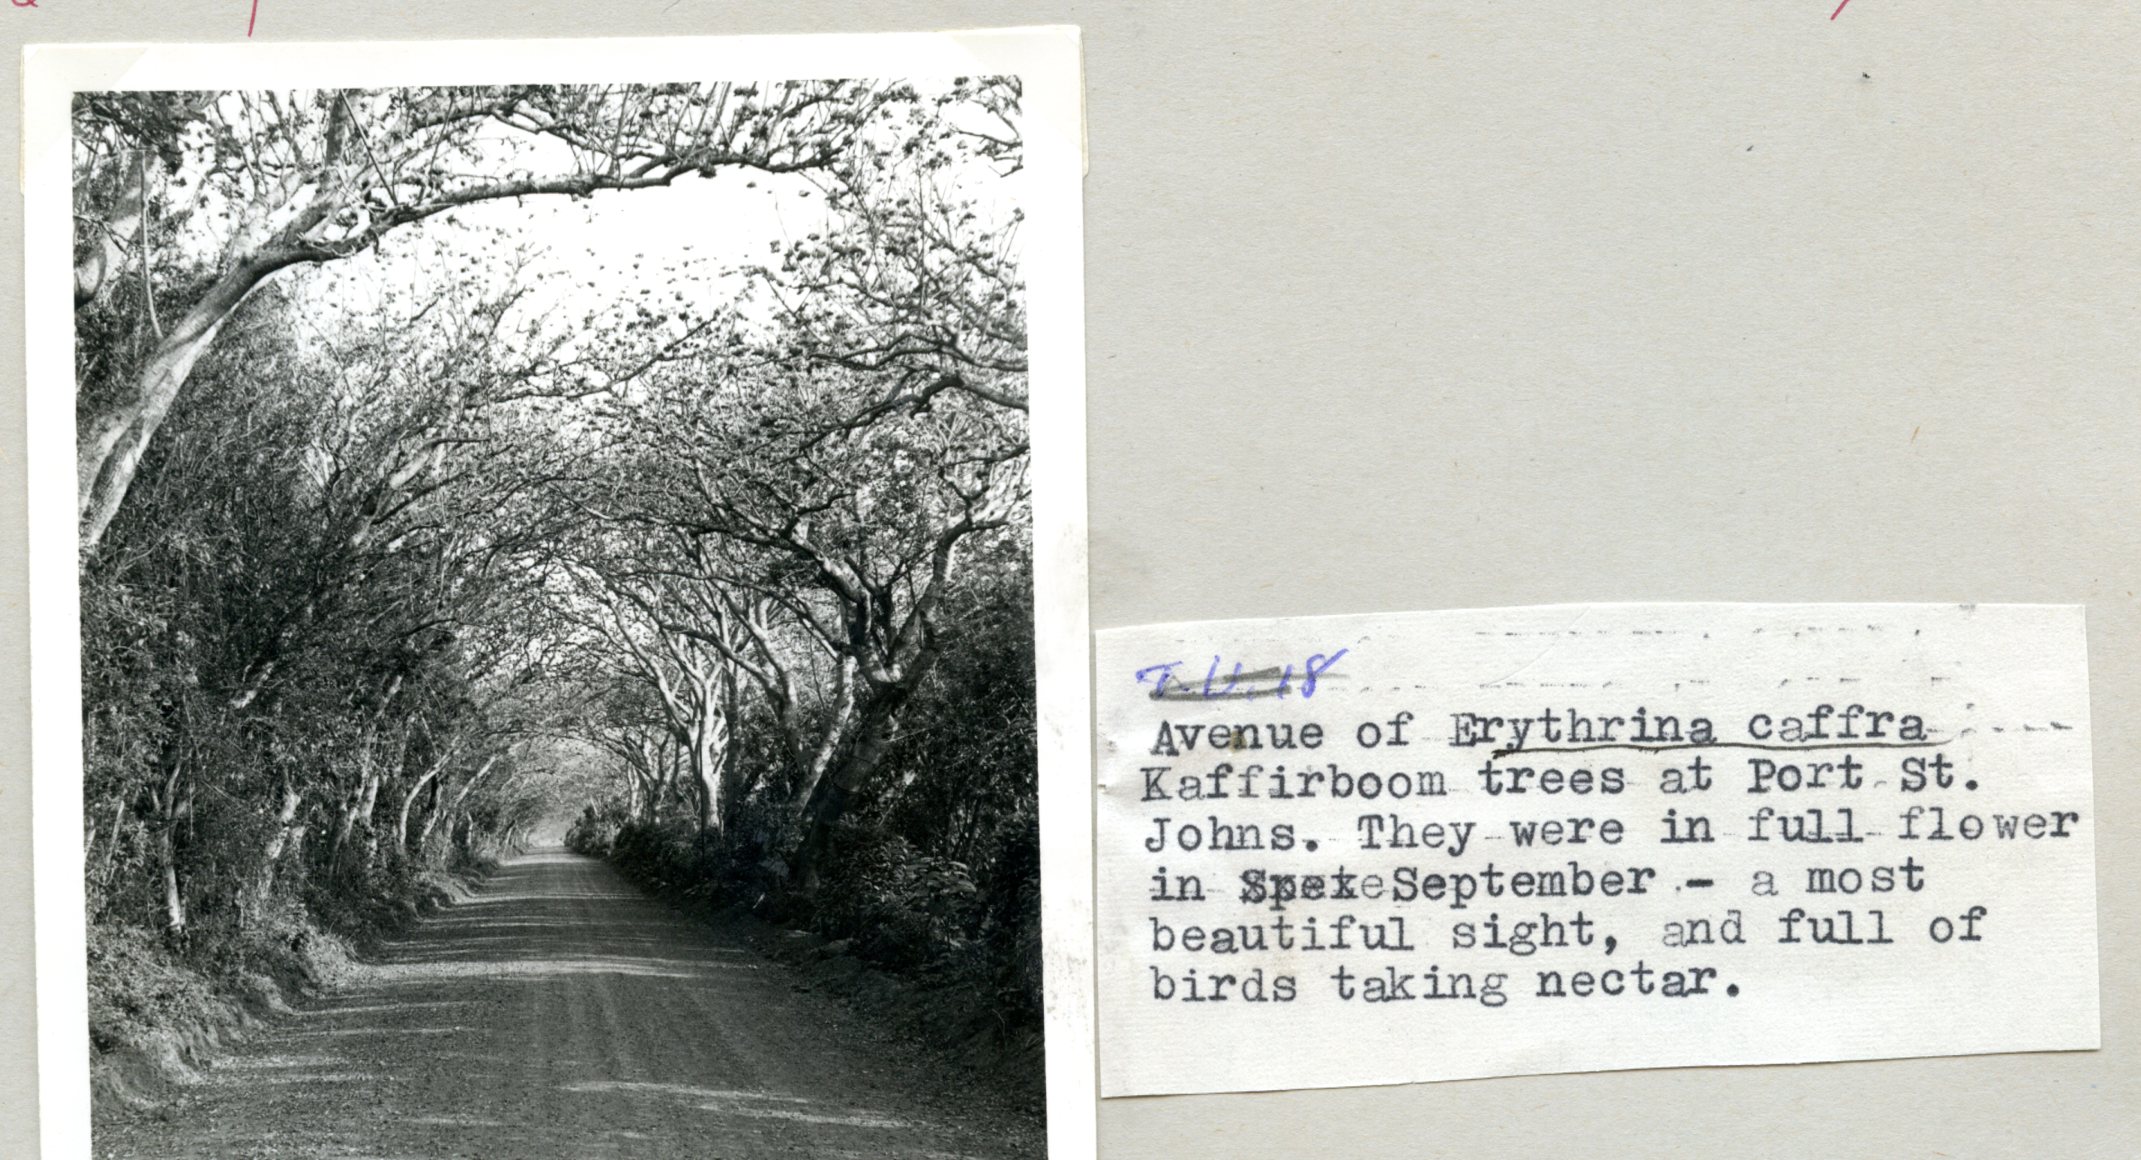 T.U. 18
Avenue of Erythrina caffra
Kaffirboom trees at Port St.
Johns. They were in full flower
in September - a most
beautiful sight, and full of
birds taking nectar.